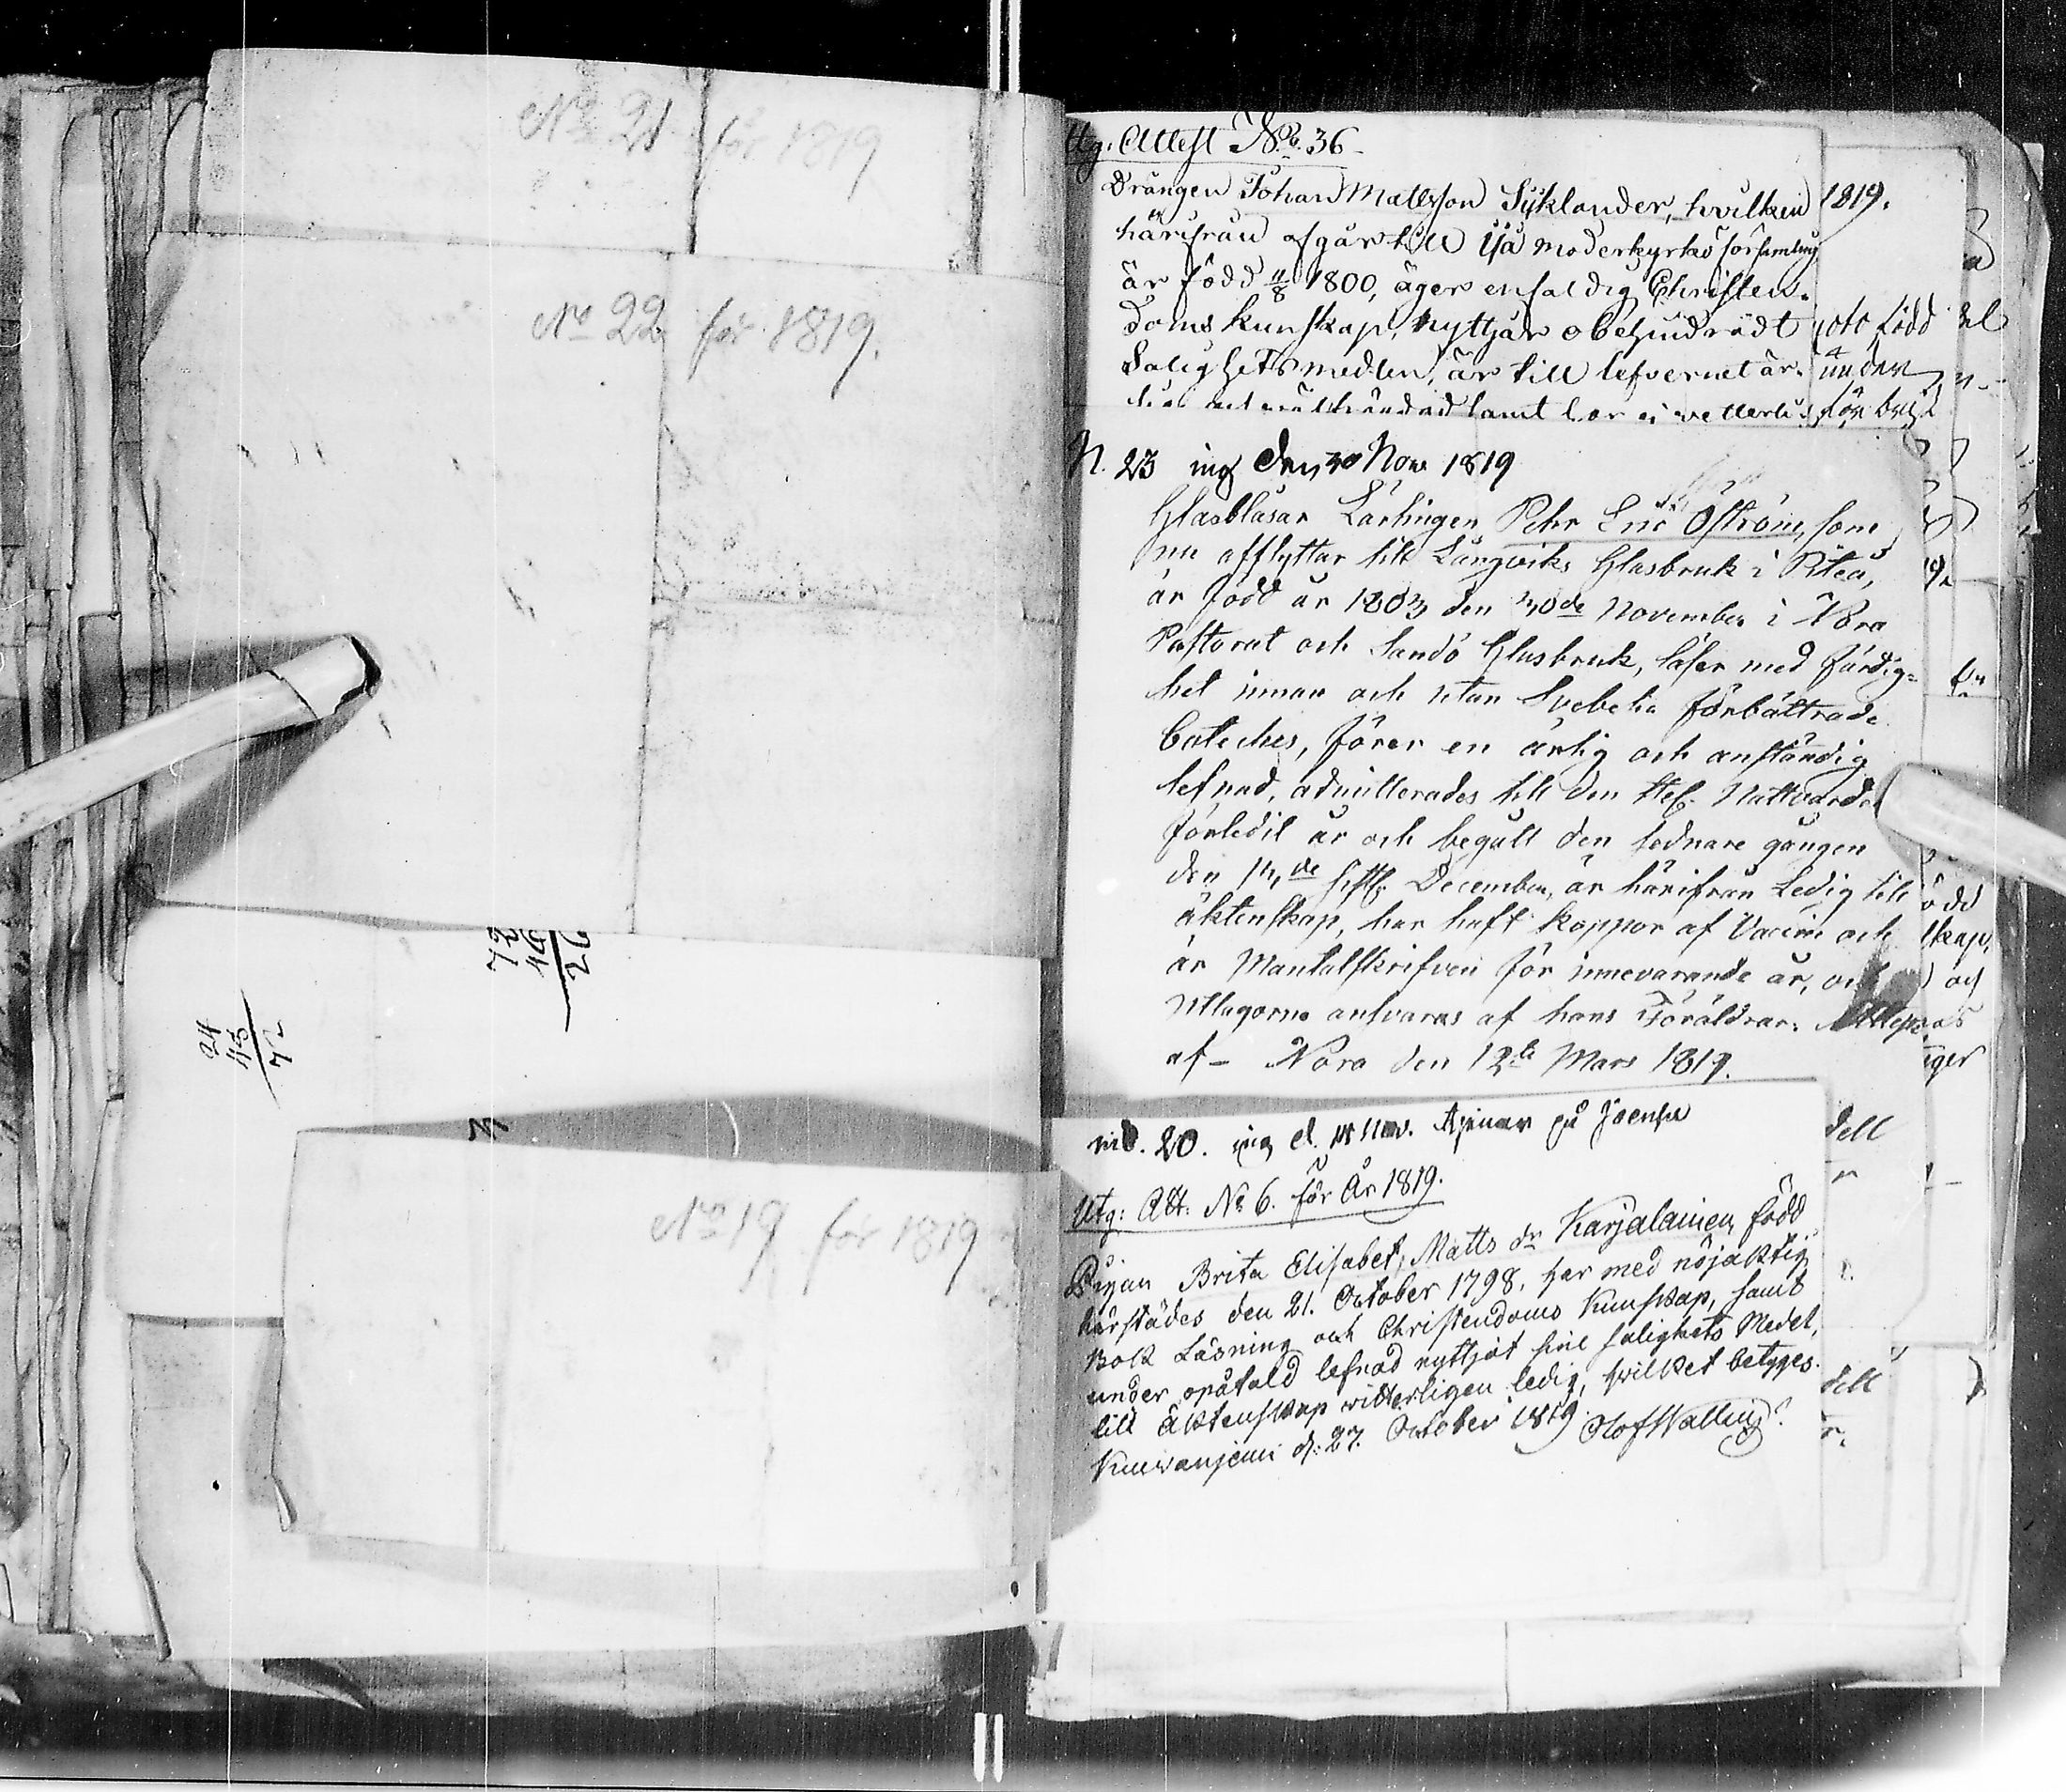 No 21 för 1819
No 22 för 1819.
24
43
72
No 19 för 1819
Utg. Attest No. 36
Drängen Johan Mattsson Syklander, hvilken
härifrån afgår till Ijå moderkyrko församling
är född 11/8 1800, äger enfaldig Christen-
doms kunskap, nyttjar obehindradt
Salighets medlen, är till lefvernet är-
samt har ej vetterli-
1819.
född
under
N. 23 ing den 30 Nov 1819
Glasblåsar Lärlingen Pehr Eric Öström, som
nu afflyttar till Långviks Glasbruk i Piteå,
är född år 1803 den 30de November i Nora
Pastorat och Sandö Glasbruk, läser med färdig-
het innan och utan Svebelii förbättrade
Cateches, förer en ärlig och anständig
lefnad, admitterades till den Hel. Nattvarden
förledit år och begått den sednare gången
den 14de sistl. December, är härifrån Ledig till
äktenskap, har haft koppor af Vaccine och
är Mantalskrifven för innevarande år, och
Utlagorne ansvaras af hans Föräldrar. Attesteras
af - Nora den 12te Mars 1819.
No. 20. ing d. Nov. på Joensu
Utg: Att: No 6. för År 1819.
Pigan Brita Elisabet, Matts dr Karjalainen, född
härstädes den 21. October 1798, har med nöjaktig
Bok Läsning och Christendoms Kunskap, samt
under opåtald lefnad nyttjat sine salighets Medel,
till Äktenskap vitterligen ledig, hvilket betyges.
Kuivanjemi d: 27. October 1819. Olof Walling